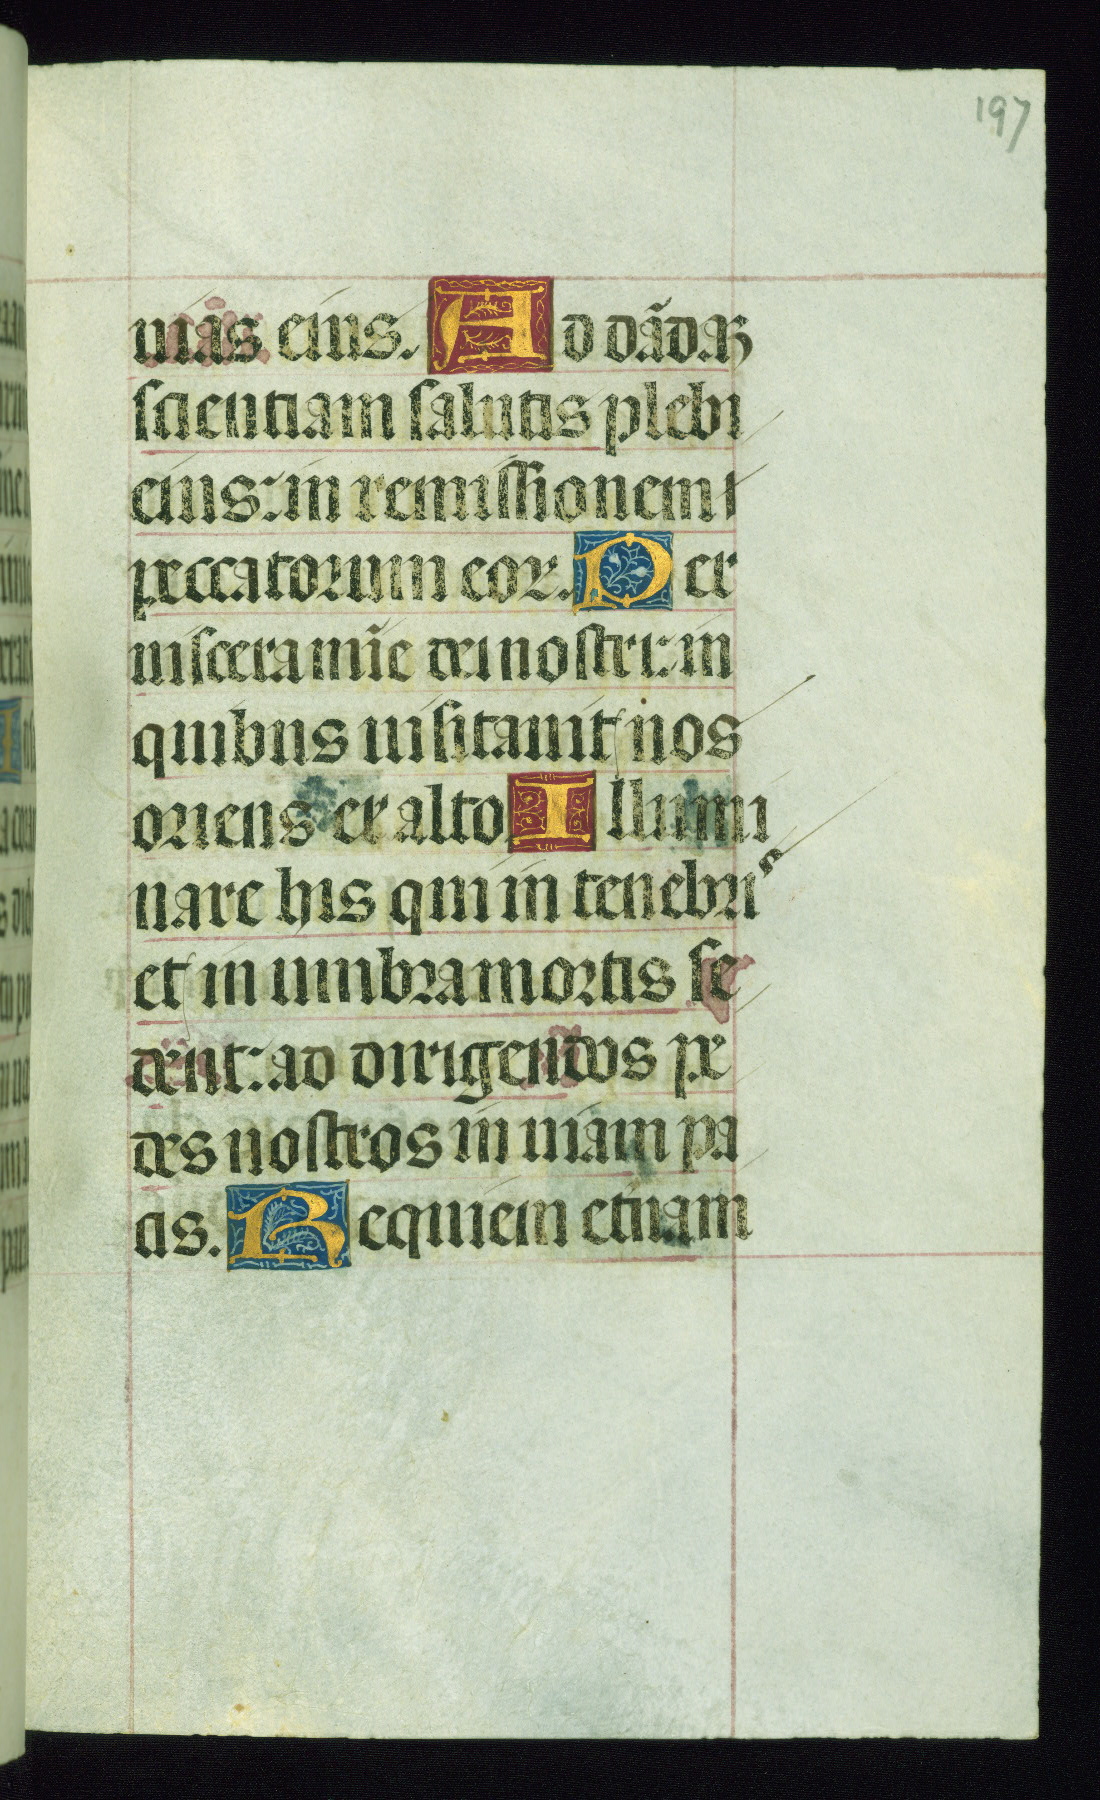 197
uias eius. Ad dādaꝫ
scientiam salutis plebi
eius: in remissionem
peccatorum eoꝝ. Per
uiscera mi̅e dei nostri: in
quibus uisitauit nos
oriens ex alto Illumi
nare his qui in tenebris
et in umbra mortis se
dent: ad dirigendos pe
des nostros in uiam pa
cis. Requiem eternam